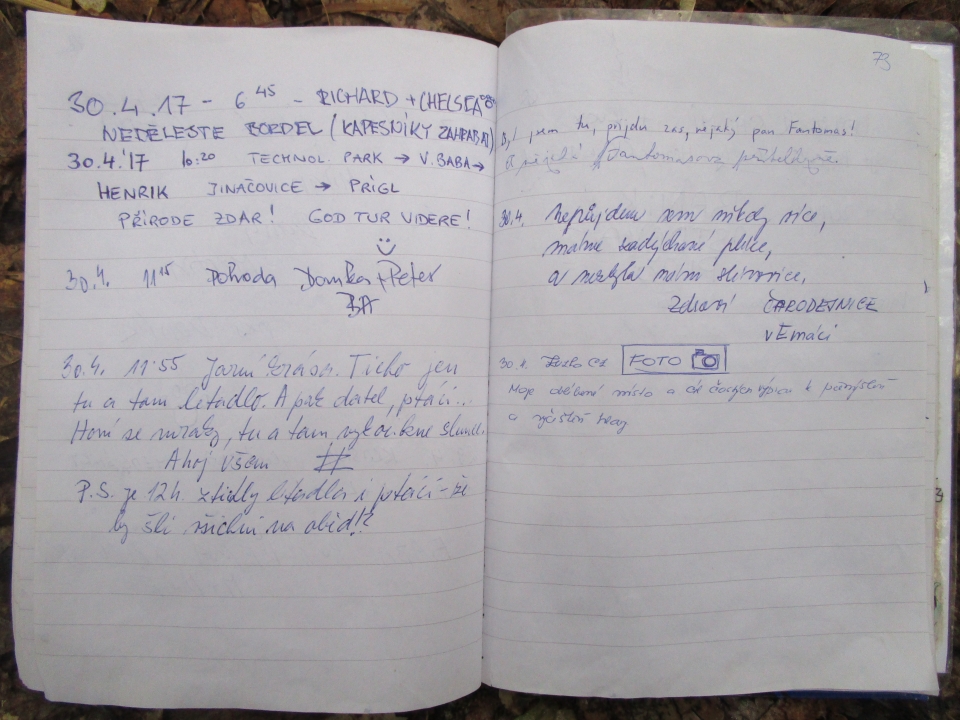 30.4.17 - 6 45 - RICHARD + CHELSEA
NEDĚLEJTE BORDEL (KAPESNÍKY ZAHRABAT)
30.4.'17 10:20 TECHNOL. PARK → V. BABA →
HENRIK JINAČOVICE → PRIGL
PŘÍRODE ZDAR! GOD TUR VIDERE!
30.4. 11 15 Pohoda Danka + Peter
BA
30.4. 11:55 Jarní krása. Ticho jen
tu a tam letadlo. A pak datel, ptáci...
Honí se mraky, tu a tam vykoukne slunce.
Ahoj všem #
P.S. je 12h. ztichly letadla i ptáci - že
by šli všichni na oběd!?
73
jsem tu, přijdu zas, nějaký pan Fantomas!
Fantomasova přítelkyně.
30.4. Nepřijdem sem nikdy více,
máme zadýchané plíce,
a nezbyla nám slivovice,
Zdraví ČARODEJNICE
v Emaci
30.4. CZ FOTO
Moje oblíbené místo a cíl častých výprav k přemýšlení
a vyčištění hlavy